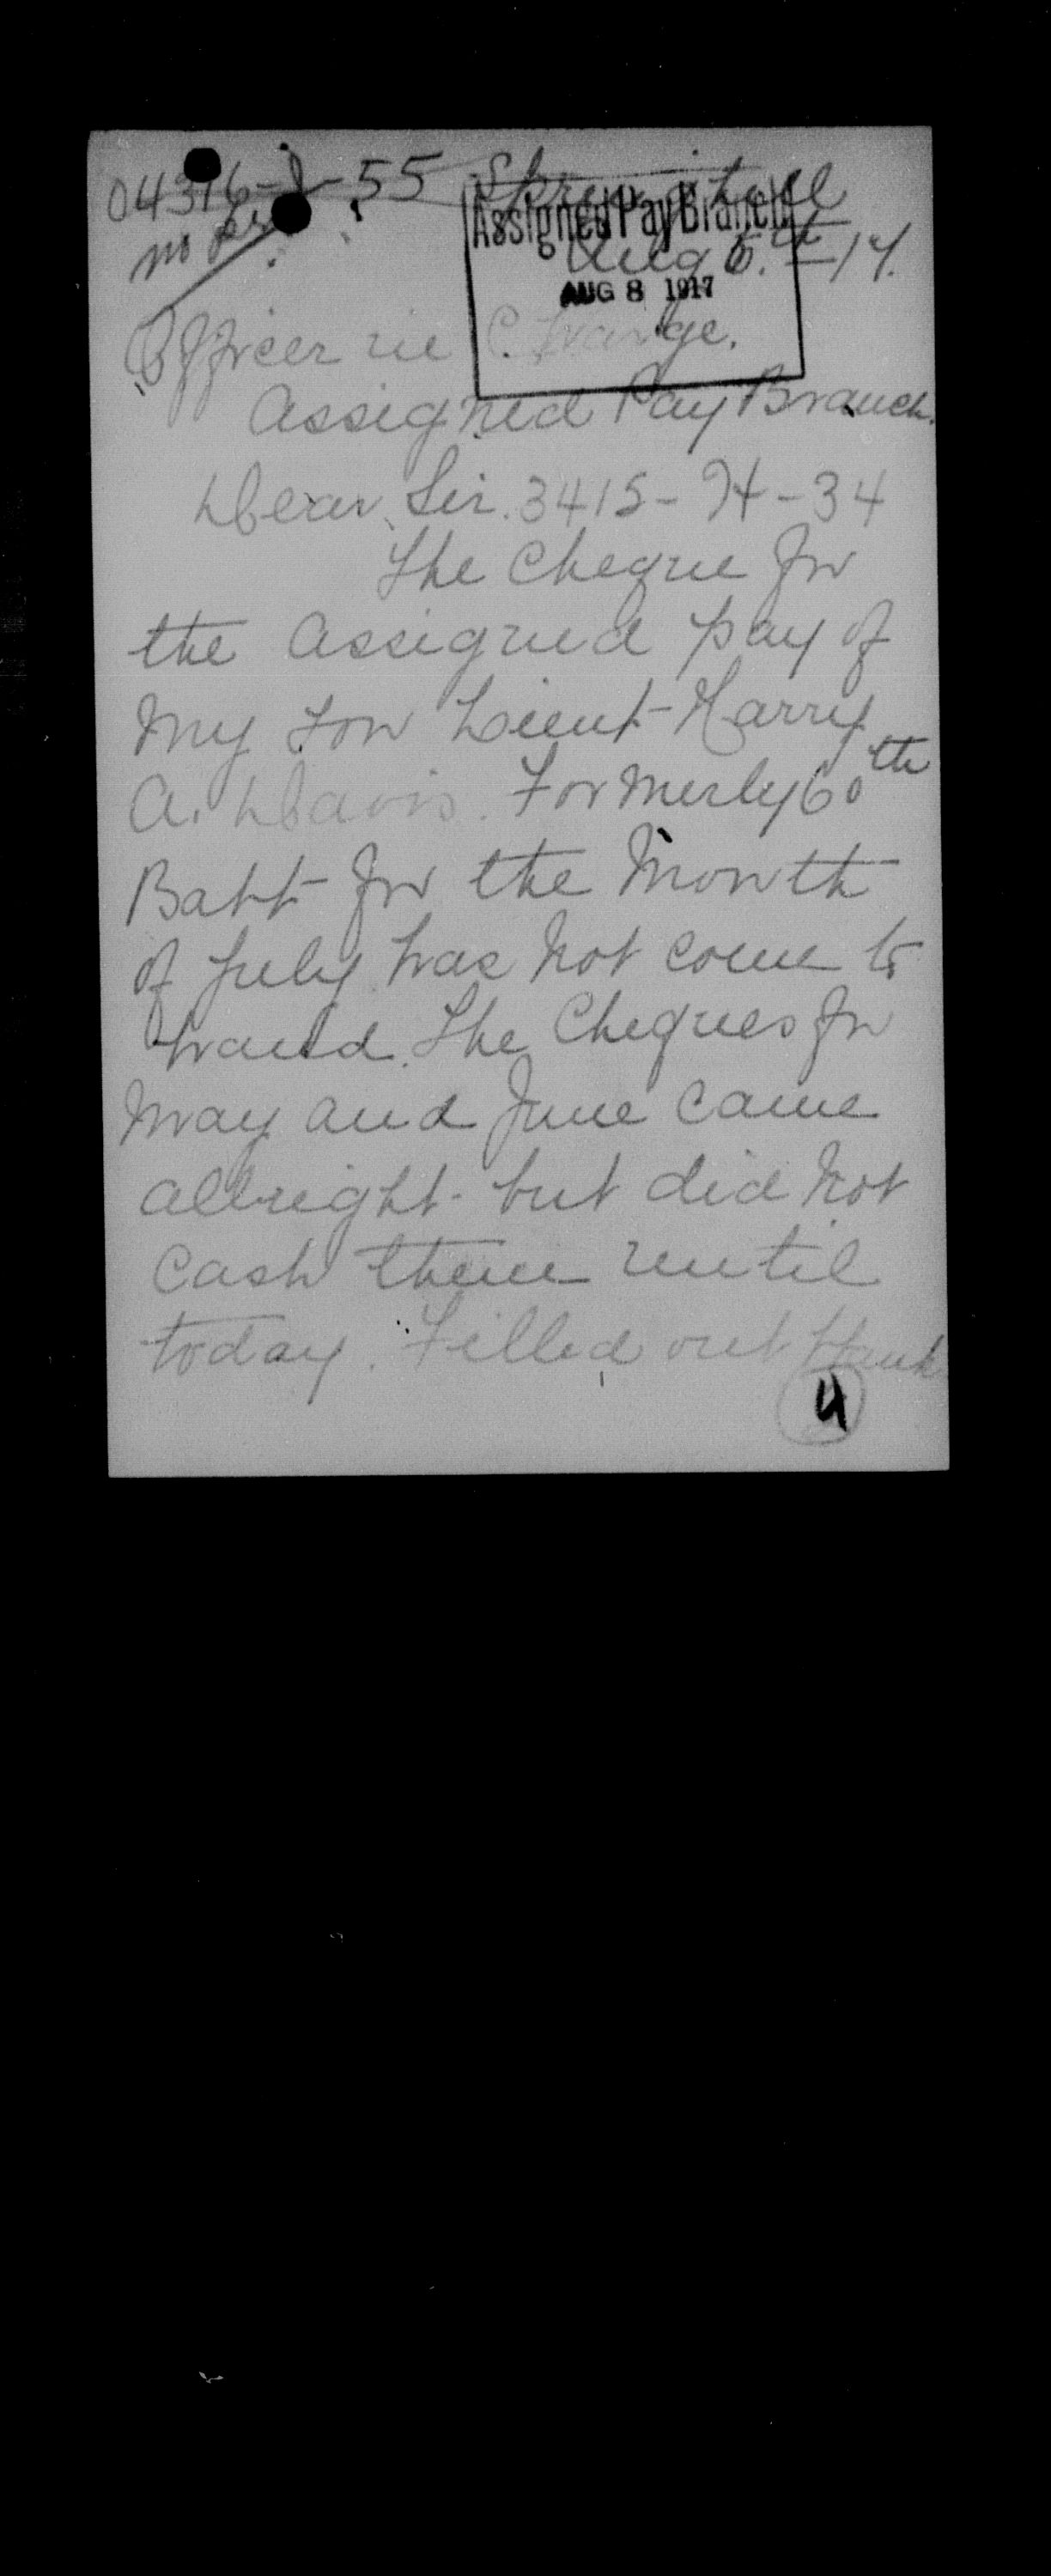 04316-D-55 Springhill
Assigned Pay Branch
Aug 5.th-17.
AUG 8 1917
Officer in Charge.
Assigned Pay Branch.
Dear Sir. 3415-H-34
The Cheque for
the Assigned pay of
My son Lieut-Harry
A. Davis. Formerly 60th
Batt for the Month
of July has not come to
hand. The Cheques for
May and June came
allright but did not
cash them until
today. Filled out
4